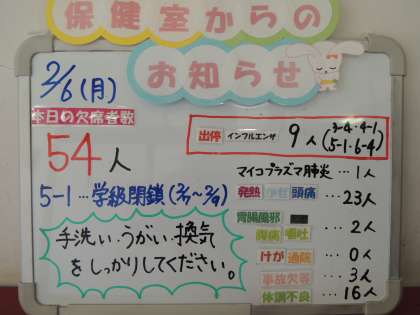 保健室からの
お知らせ
2/6(月)
本日の欠席者数
54人
5-1…学級閉鎖(2/7〜2/9)
手洗い・うがい・換気
をしっかりしてください。
出停 インフルエンザ 9人(3-4・4-1
5-1・6-4)
マイコプラズマ肺炎…1人
発熱 頭痛…23人
胃腸風邪
腹痛 嘔吐…2人
けが 通院…0人
事故欠等…3人
体調不良…16人